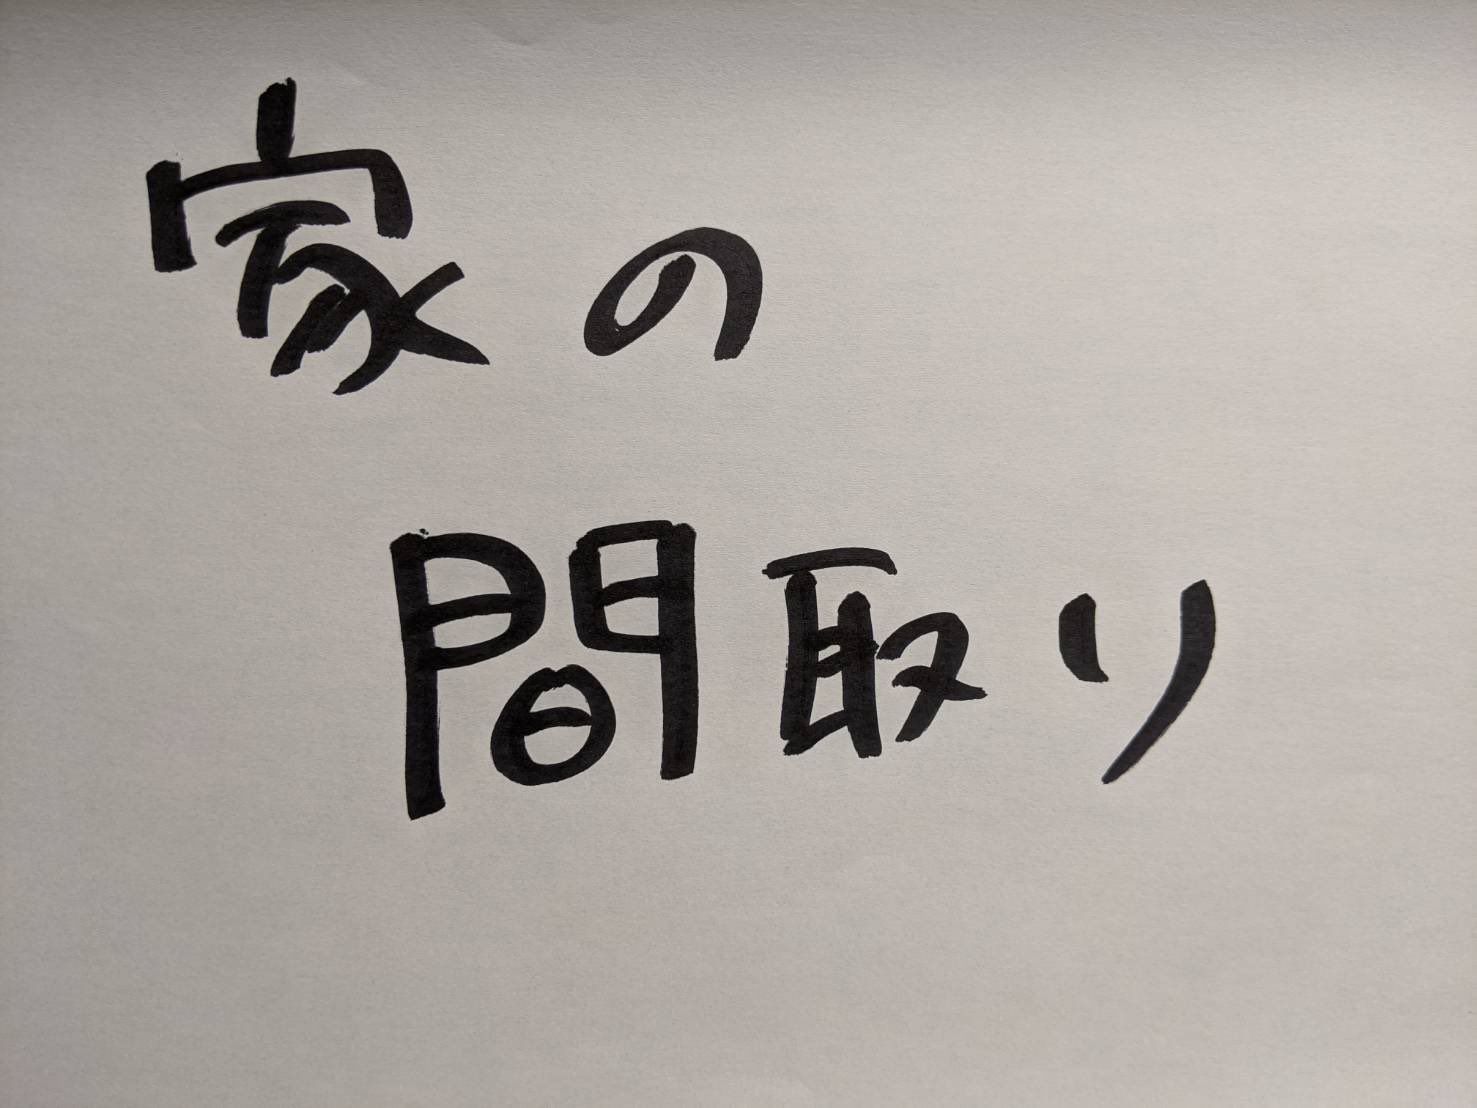 家の
間取り